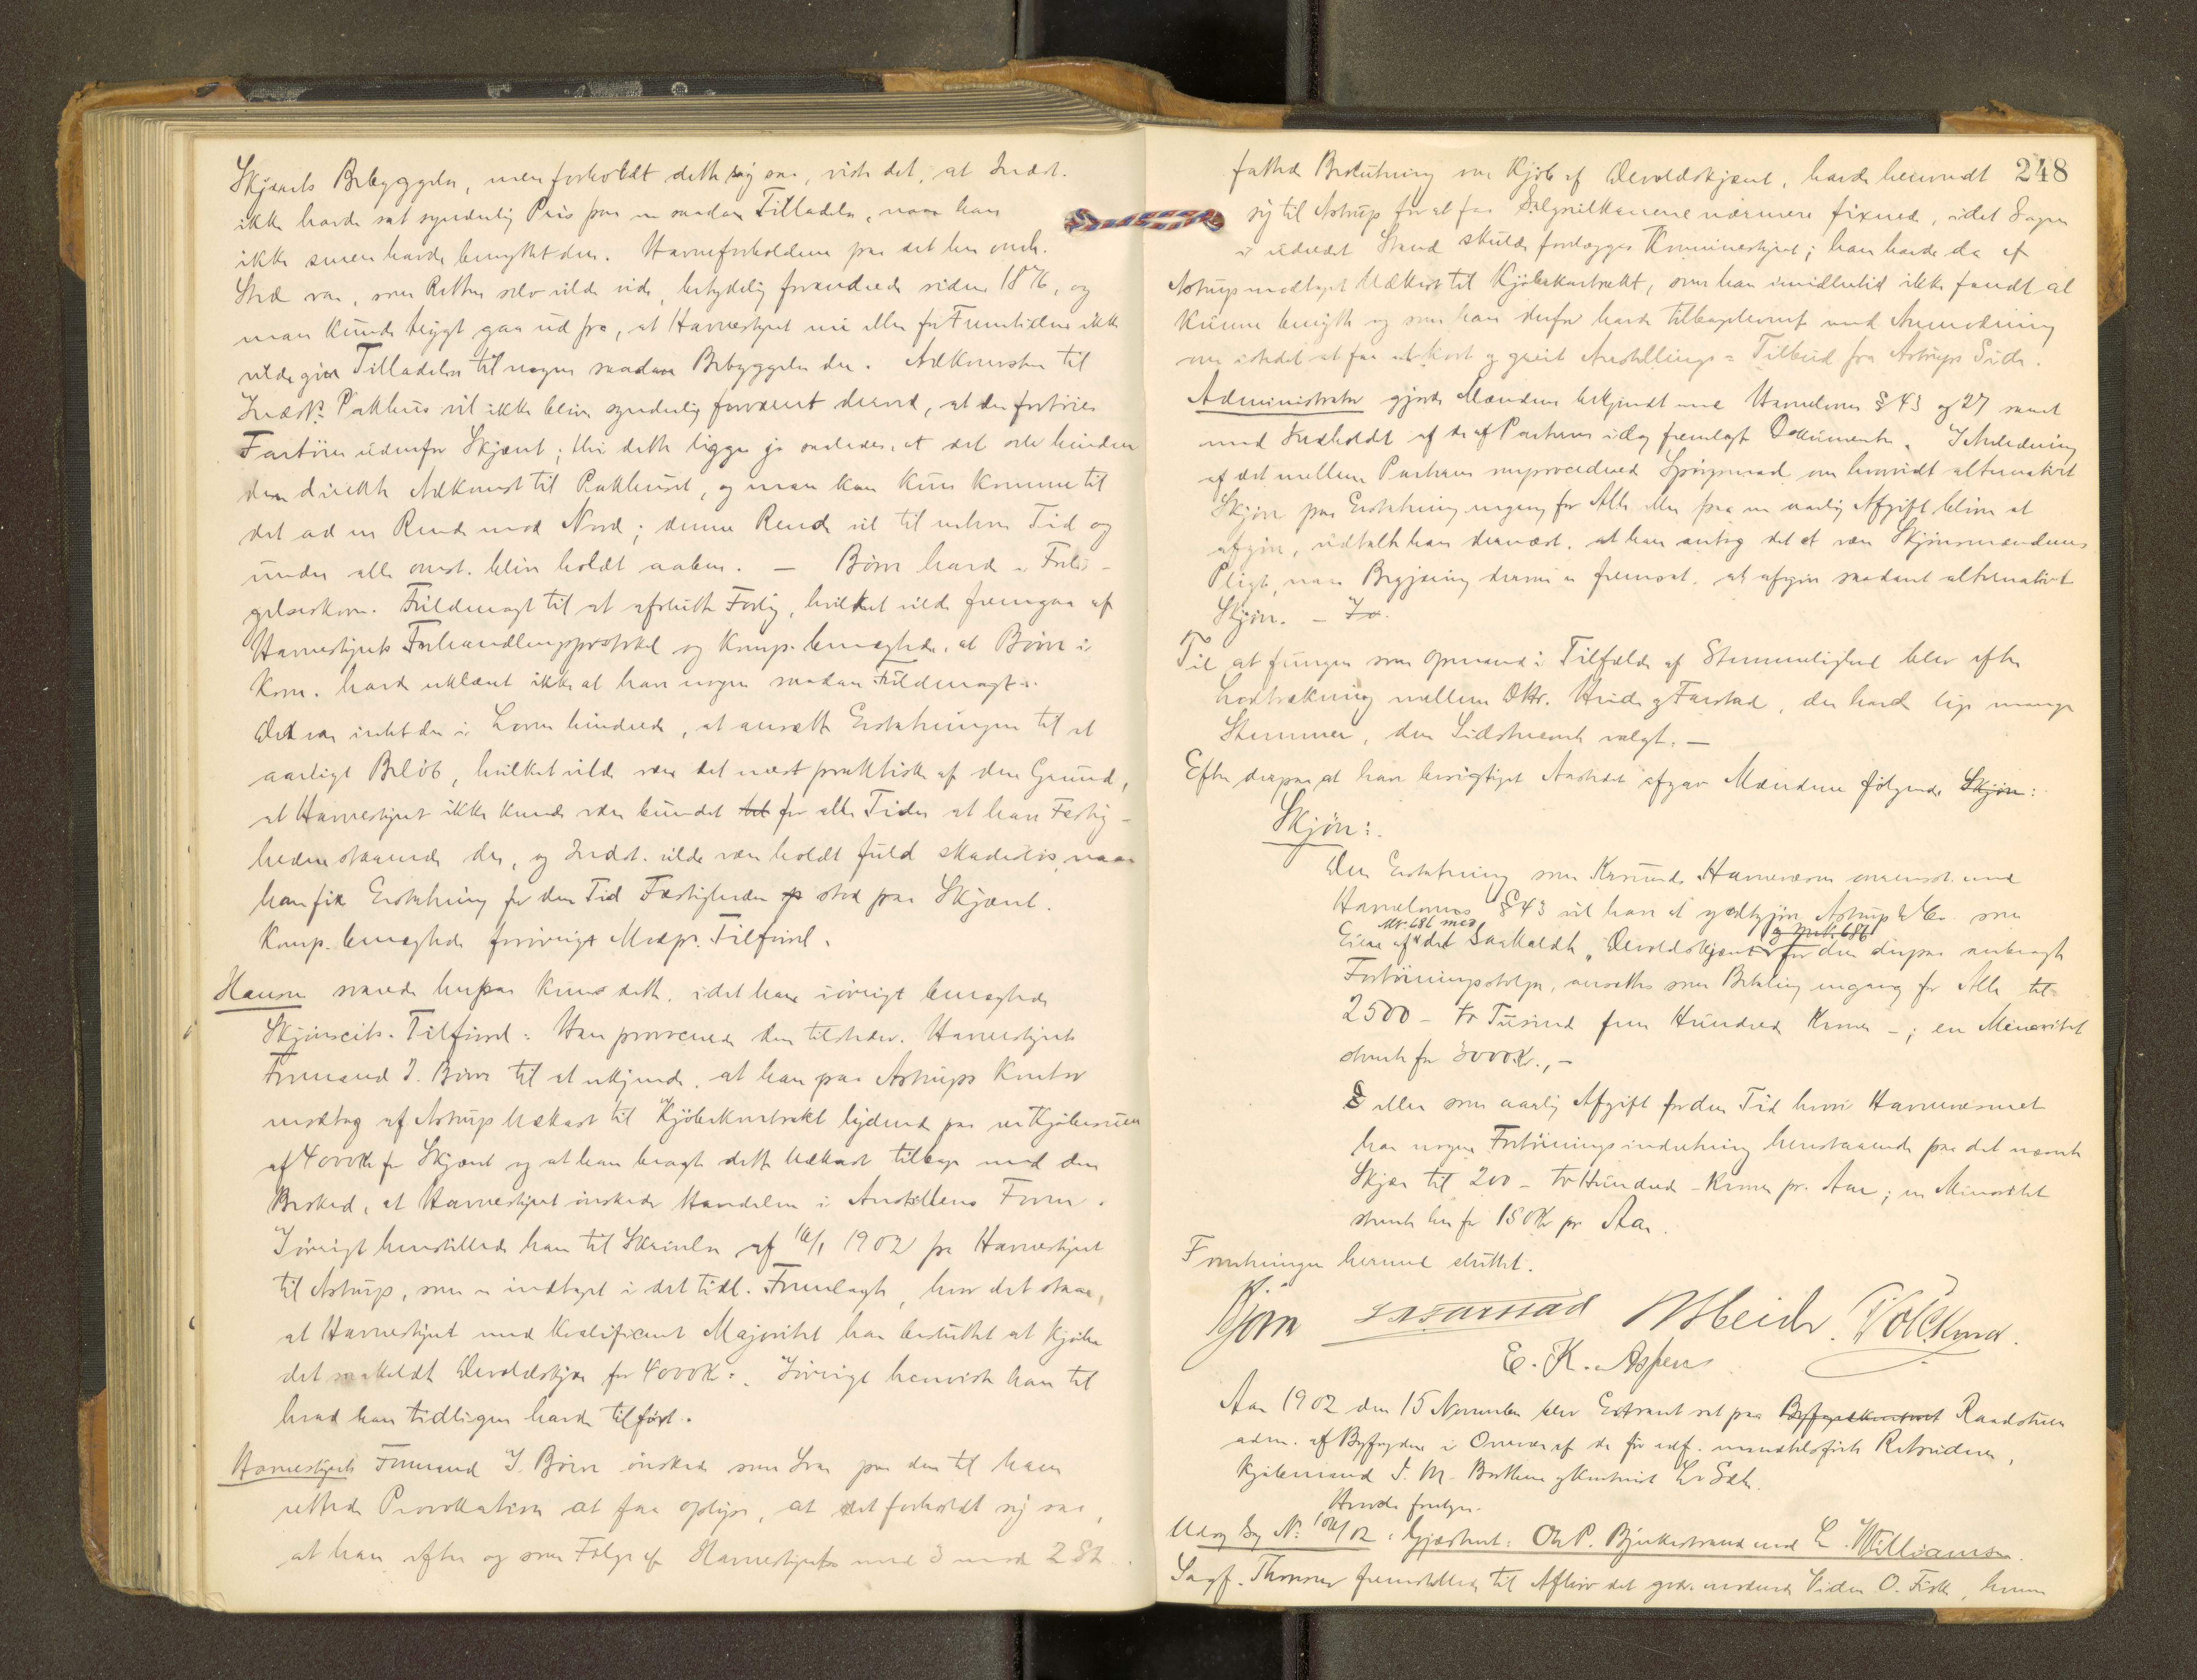 Skjærets Bebyggelse, men forholdt dette sig saa, viste det, at Indst.
ikke havde sat synderlig Pris paa en saadan Tilladelse, naar han
ikke senere havde benyttet den. Havneforholdene paa det her omh.
Sted var, som Retten selv vilde vide, betydelig forandrede siden 1876, og
man kunde trygt gaa ud fra, at Havnestyret nu eller for Fremtiden ikke
vilde give Tilladelse til nogen saadan Bebyggelse der. Adkomsten til
Indst.s Pakhus vil ikke blive synderlig forværret derved, at der fortøies
Fartøier udenfor Skjæret; thi dette ligger jo saaledes, at det selv hindrer
den direkte Adkomst til Pakhuset, og man kan kun komme til
det ad en Rende mod Nord; denne Rende vil til enhver Tid og
under alle omst. blive holdt aaben. – Børre havde i Forli-
gelseskom. Fuldmagt til at afslutte Forlig, hvilket vilde fremgaa af
Havnestyrets Forhandlingsprotokol og Komp. benægtede, at Børre i
Kom. havde erklæret ikke at have nogen saadan Fuldmagt.
Det var intet der i Loven hindrede, at ansætte Erstatningen til et
aarligt Beløb, hvilket vilde være det mest praktiske af den Grund,
at Havnestyret ikke kunde være bundet til for alle Tider at have Fæstig-
hederne staaende der, og Indst. vilde være holdt fuld skadesløs, naar
han fik Erstatning for den Tid Fæstigheden stod paa Skjæret.
Komp. benægtede forøvrigt Modp. Tilførsel.
Hansen svarede herpaa kun dette, idet han iøvrigt benægtede
Skjønscit. Tilførsel: Han provocerede den tilstedev. Havnestyrets
Formand J. Børre til at erkjende, at han paa Astrups Kontor
modtog af Astrup Udkast til Kjøbekontrakt lydende paa en Kjøbesum
af 4000 Kr for Skjæret og at han bragte dette Udkast tilbage med den
Besked, at Havnestyret ønskede Handelen i Anstillens Form.
Iøvrigt henstillede han til Skrivelse af 16/1 1902 fra Havnestyret
til Astrup, som er indtaget i det tidl. Fremlagte, hvor det staar,
at Havnestyret med kvalificeret Majoritet har besluttet at kjøbe
det saakaldte Devoldskjær for 4000 Kr. Iøvrigt henviste han til
hvad han tidligere havde tilført.
Havnestyrets Formand J. Børre ønskede som Svar paa den til ham
rettede Provokation at faa oplyst, at det forholdt sig saa,
at han efter og som Følge af Havnestyrets med 3 mod 2 St.
248
fattede Beslutning om Kjøb af Devoldskjæret, havde henvendt
sig til Astrup for at faa Salgsvilkaarene nærmere fixeret, idet Sagen
i udredet Stand skulde forelægges Kommunestyret; han havde da af
Astrup modtaget Udkast til Kjøbekontrakt, som han imidlertid ikke fandt at
kunne benytte og som han derfor havde tilbageleveret med Anmodning
om istedet at faa et kort og greit Anstillings-Tilbud fra Astrups Side.
Administrator gjorde Mændene bekjendt med Havnelovens § 43 og 27 samt
med Indholdet af de af Parterne idag fremlagte Dokumenter. I Anledning
af det mellem Parterne improcederede Spørgsmaal om hvorvidt alternativt
Skjøn paa Erstatning engang for Alle eller paa en aarlig Afgift bliver at
afgive, udtalte han dernæst, at han antog det at være Skjønsmændenes
Pligt, naar Begjæring derom er fremsat, at afgive saadant alternativt
Skjøn. –
Til at fungere som Opmand i Tilfælde af Stemmelighed blev efter
Lodtrækning mellem DHr. Heide og Farstad, der havde lige mange
Stemmer, den Sidstnævnte valgt. –
Efter derpaa at have besigtiget Aastedet afgav Mændene følgende Skjøn:
Skjøn:
Den Erstatning som Krsunds Havnevæsen overensst. med
Havnelovens § 43 vil have at godtgjøre Astrup & Co. som
Mr. 686 med og Mrk. 686
Eiere af det saakaldte „Devoldskjæret" for den derpaa anbragte
Fortøiningsstolpe, ansættes som Betaling engang for Alle til
2500 – To Tusind fem Hundrede Kroner –; en Minoritet
stemte for 3000 Kr., –
eller som aarlig Afgift for den Tid hvori Havnevæsenet
har nogen Fortøiningsindretning henstaaende paa det nævnte
Skjær til 200 – to Hundrede – Kroner pr. Aar; en Minoritet
stemte her for 150 Kr pr. Aar.
Forretningen hermed sluttet.
Bjørn Farstad Heide. Volckmar.
E. K. Aspen
Aar 1902 den 15 November blev Extraret sat paa Byfogedkontoret Raadstuen
adm. af Byfogden i Overvær af de før edf. mundtl. tilsførte Retsvidner,
Kjøbmand J. M. Bothner og Kontorist Lv Sæth.
Hvorda foretoges.
Udog Sag No: 102/02: Gjæsteret: Ole P. Bjerkestrand mod L. Williamsen.
Sagf. Thommer fremstillede til Afhør det godv. mødende Vidne O. Fiske, hvem